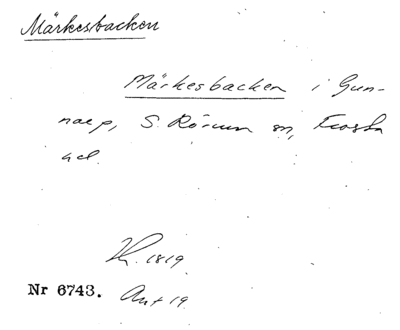 Märkesbacken
Märkesbacken i Gun-
narp, S. Rörum sn, Frosta
hd.
1819
Nr 6743. Ant 19.